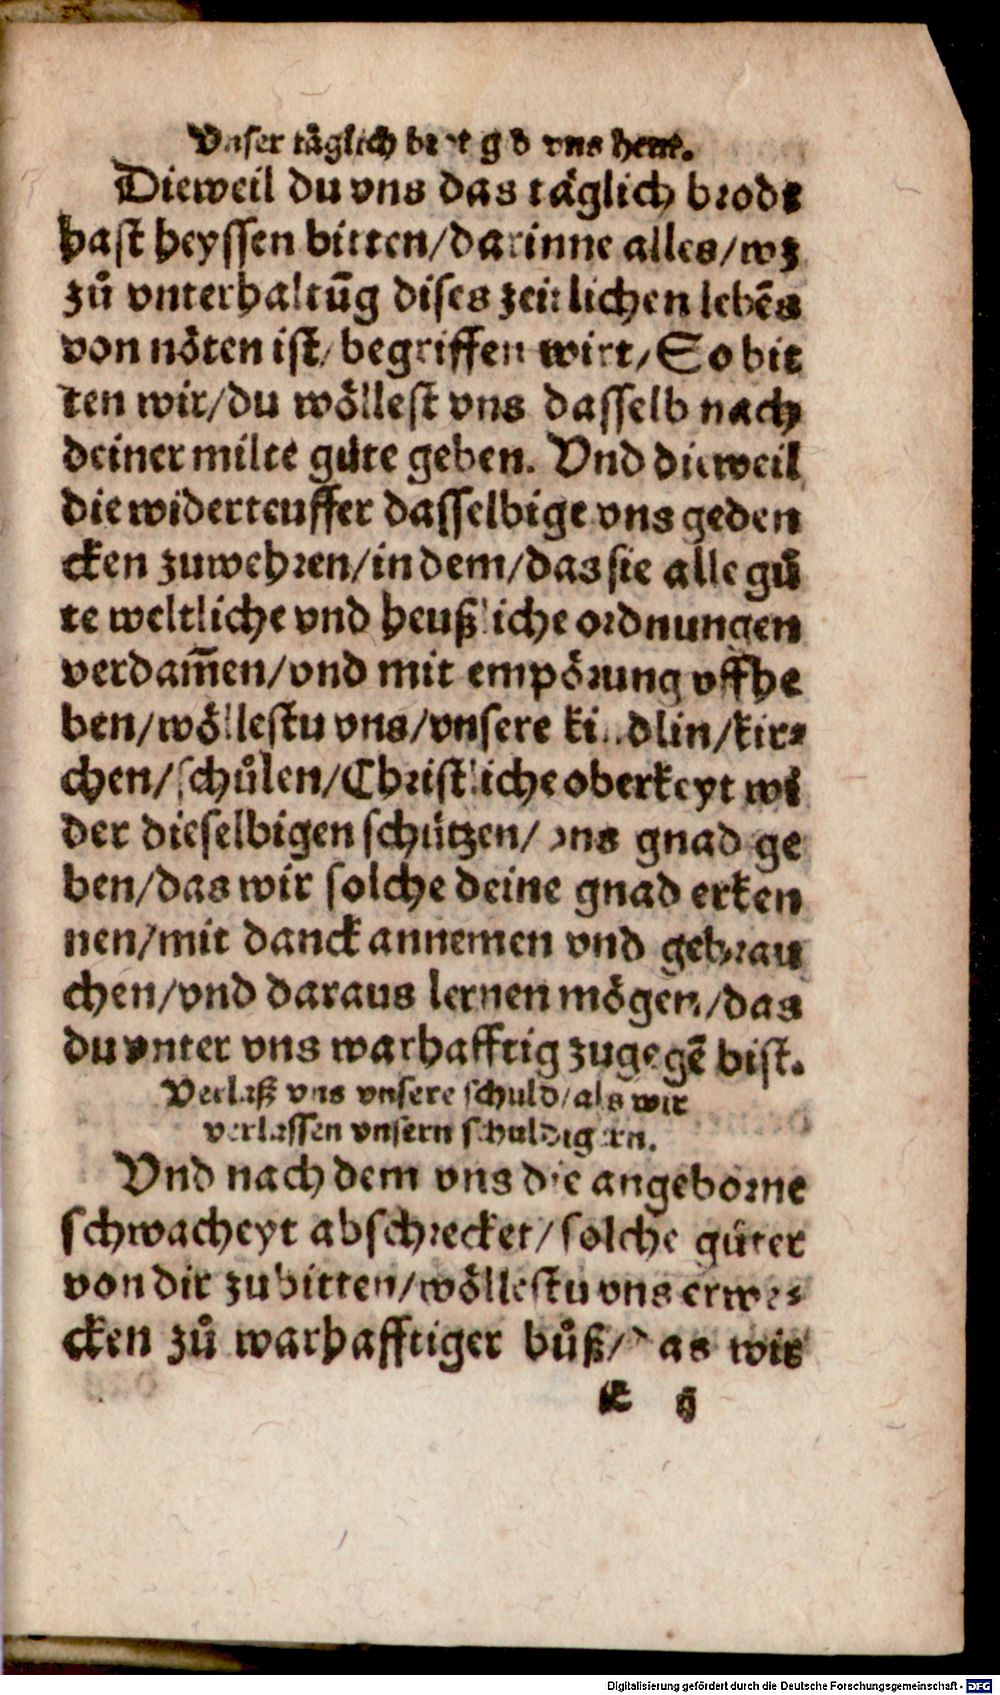 Vnser täglich brot gib vns heut.
Dieweil du vns das täglich brodt
hast heyssen bitten/darinne alles/wz
zů vnterhaltūg dises zeitlichen lebēs
von nöten ist/begriffen wirt/So bit
ten wir/du wöllest vns dasselb nach
deiner milte güte geben. Vnd dieweil
die widerteuffer dasselbige vns geden
cken zuwehren/in dem/das sie alle gů
te weltliche vnd heußliche ordnungen
verdam̄en/vnd mit empörung vffhe
ben/wöllestu vns/vnsere kindlin/kir⸗
chen/schůlen/Christliche oberkeyt wi
der dieselbigen schützen/vns gnad ge
ben/das wir solche deine gnad erken
nen/mit danck annemen vnd gebrau
chen/vnd daraus lernen mögen/das
du vnter vns warhafftig zugegē bist.
Verlaß vns vnsere schuld/als wir
verlassen vnsern schuldigern.
Vnd nach dem vns die angeborne
schwacheyt abschrecket/solche güter
von dir zubitten/wöllestu vns erwe⸗
cken zů warhafftiger bůß/das wir
ij
Digitalisierung gefördert durch die Deutsche Forschungsgemeinschaft - DFG